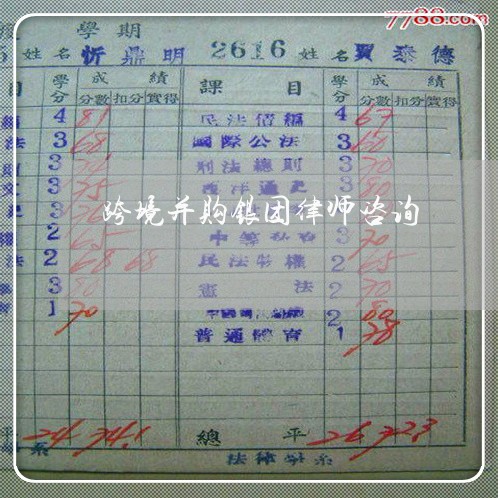 7788.com
學期
5 姓名 忻鼎明 2616 姓名 賈泰德
目 學分 成績 課目 學分 成績
分數 扣分 實得 分數 扣分 實得
4 81 民法債編 4 67
法 3 68 國際公法 3 60
3 刑法總則 3 70
文 3 75 西洋通史 3 80
跨境并购银团律师咨询
2 65 3 70
法 2 68 68 民法物權 2 65
3 80 憲法 2 70
2 80
育 1 70 普通體育 1 78
平 24 74.1 總平 26 72.3
系 法律學系